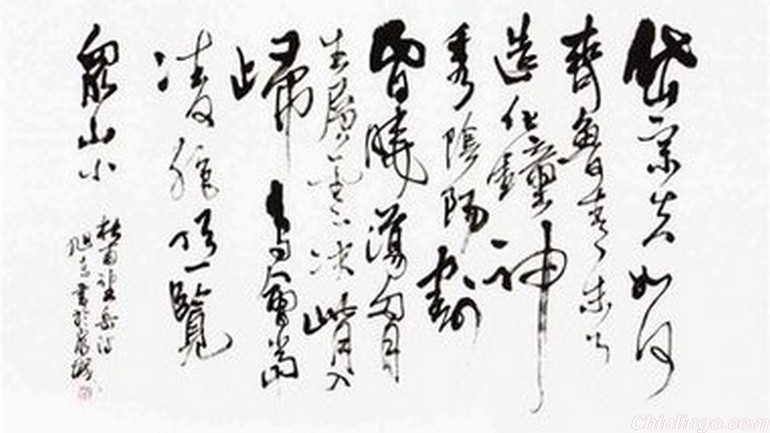 岱宗夫如何
齊魯青未了
造化鐘神
秀陰陽割
昏曉蕩胸
生層雲決眥入
歸鳥會當
凌絕頂一覽
眾山小
杜甫望岳詩
書於
Chinlingo.com